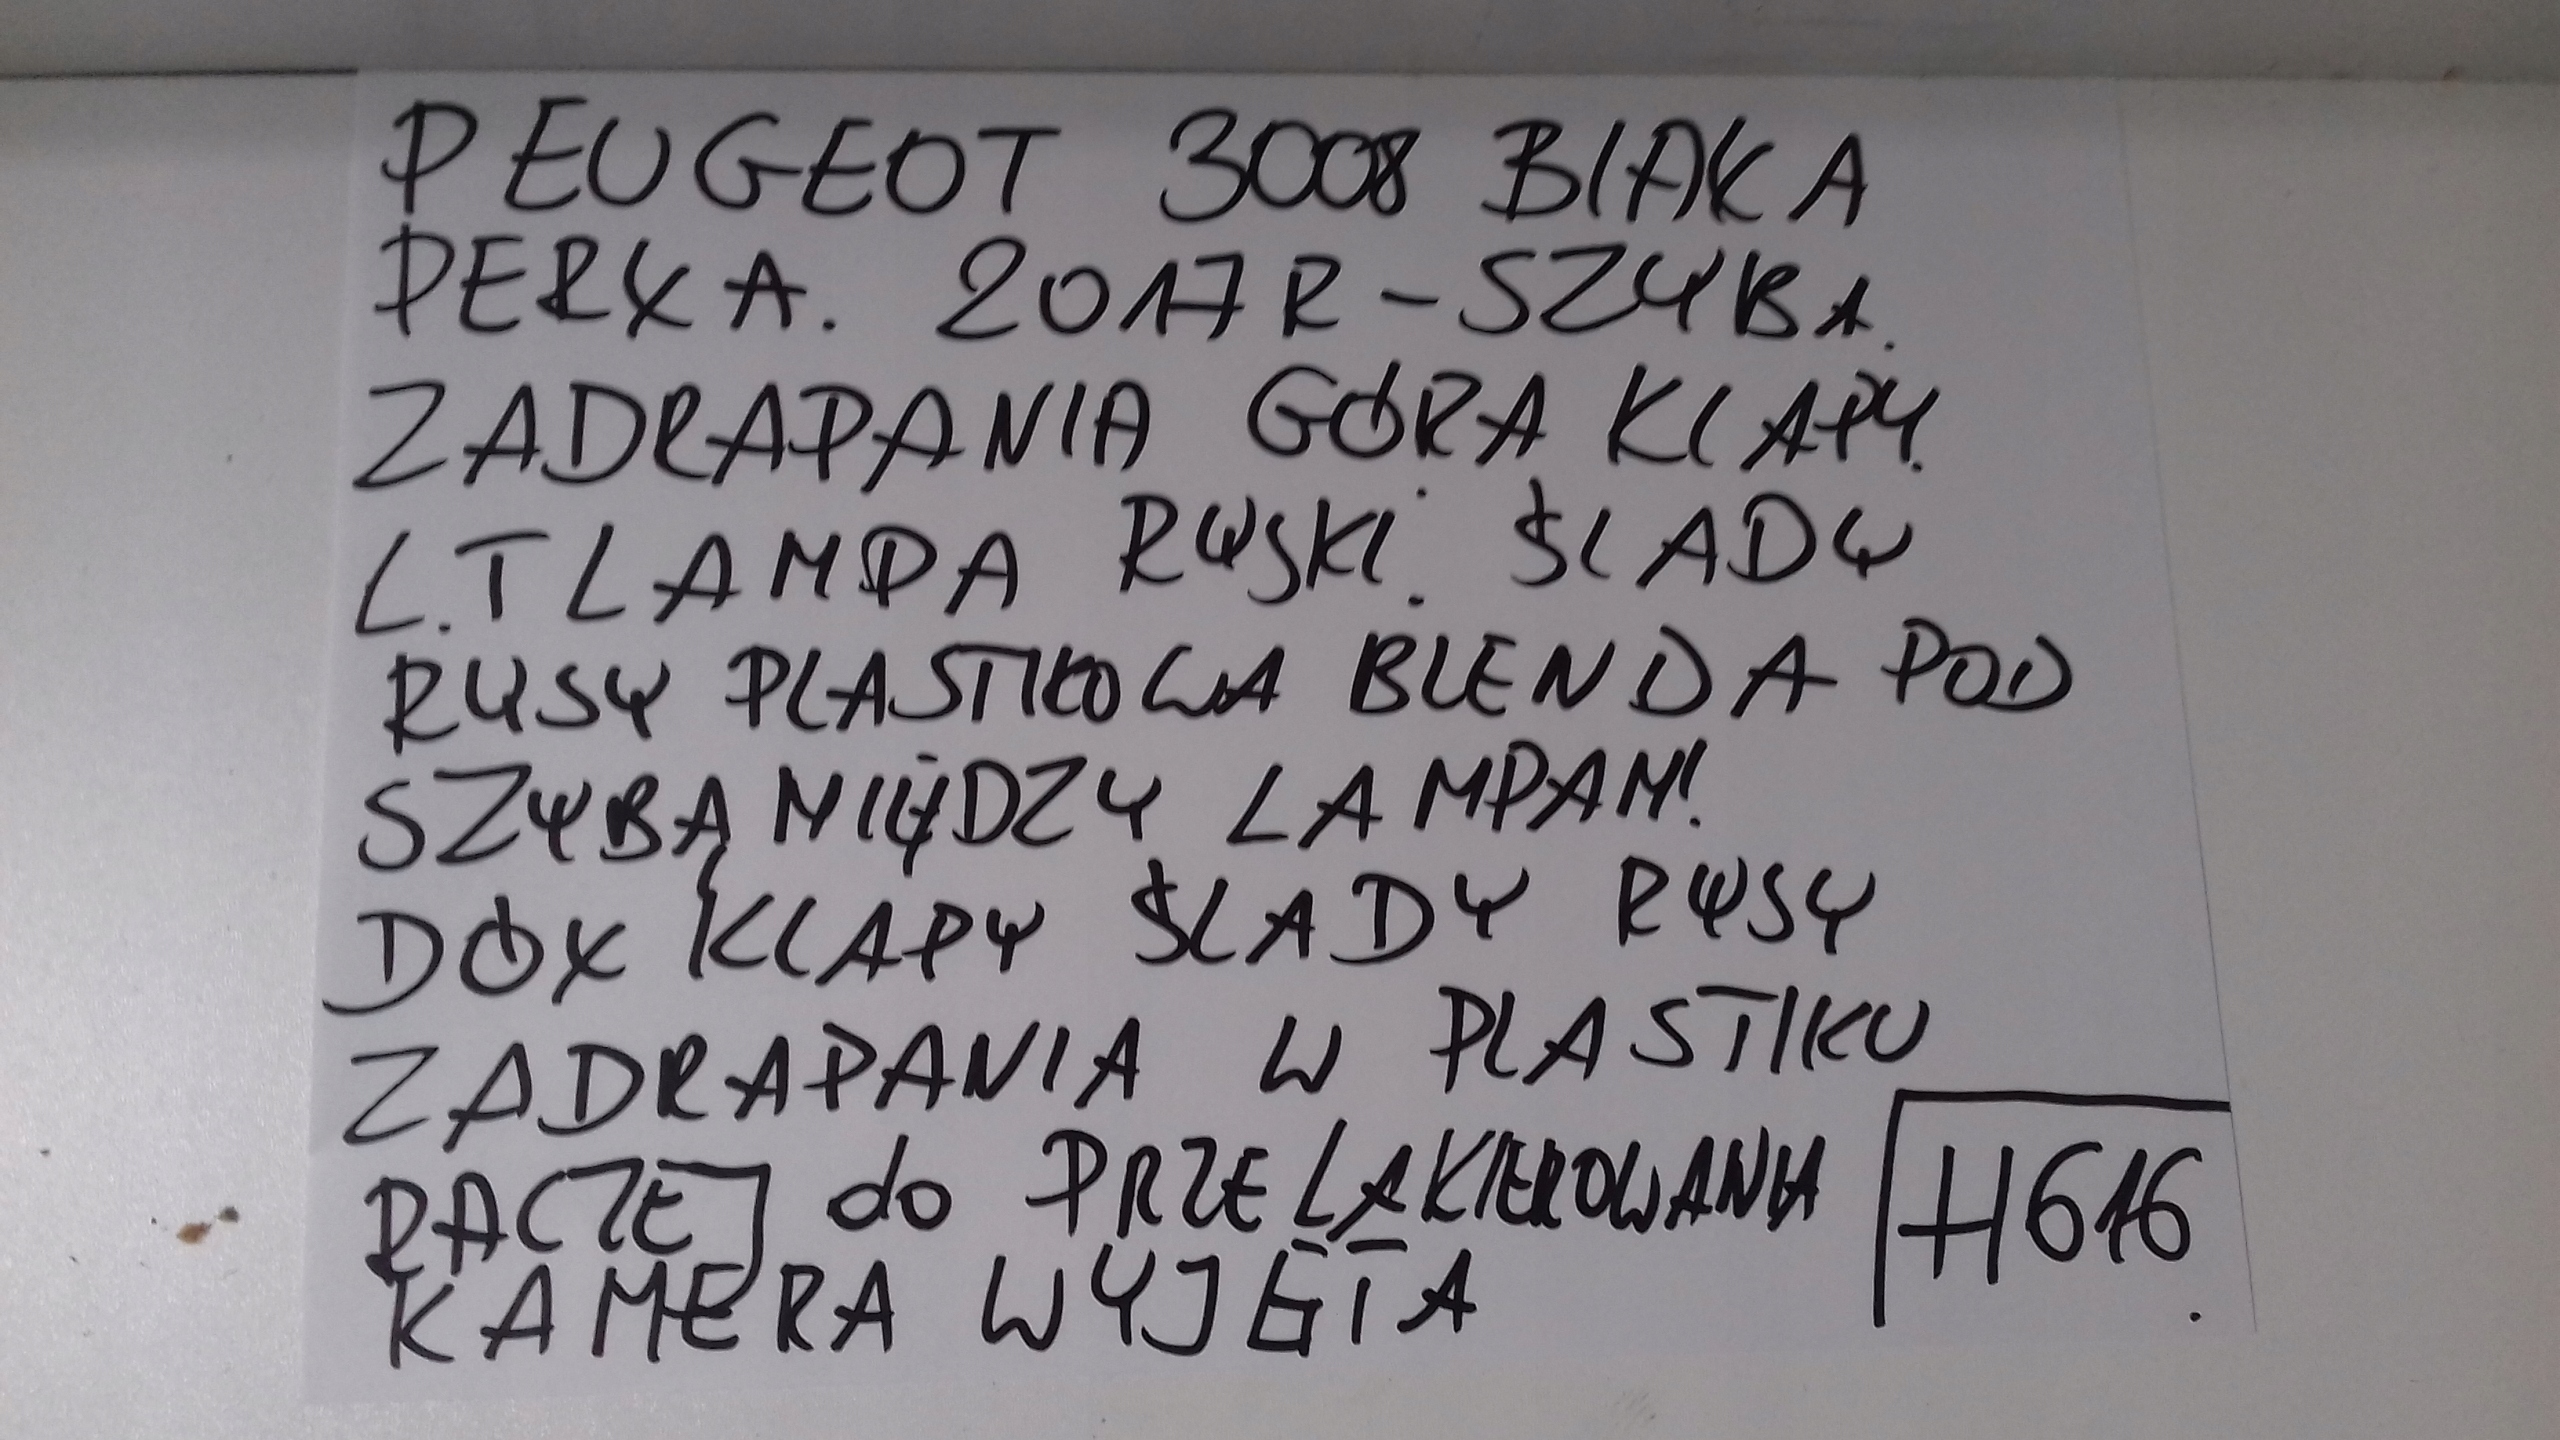 PEUGEOT 3008 BIAŁA
PERŁA. 2017R - SZYBA.
ZADRAPANIA GÓRA KLAPY.
L.T LAMPA RYSKI. ŚLADY
RYSY PLASTIKOWA BLENDA POD
SZYBĄ MIĘDZY LAMPAMI
DÓŁ KLAPY ŚLADY RYSY
ZADRAPANIA W PLASTIKU
RACZEJ do PRZELAKIEROWANIA
KAMERA WYJĘTA
H616.